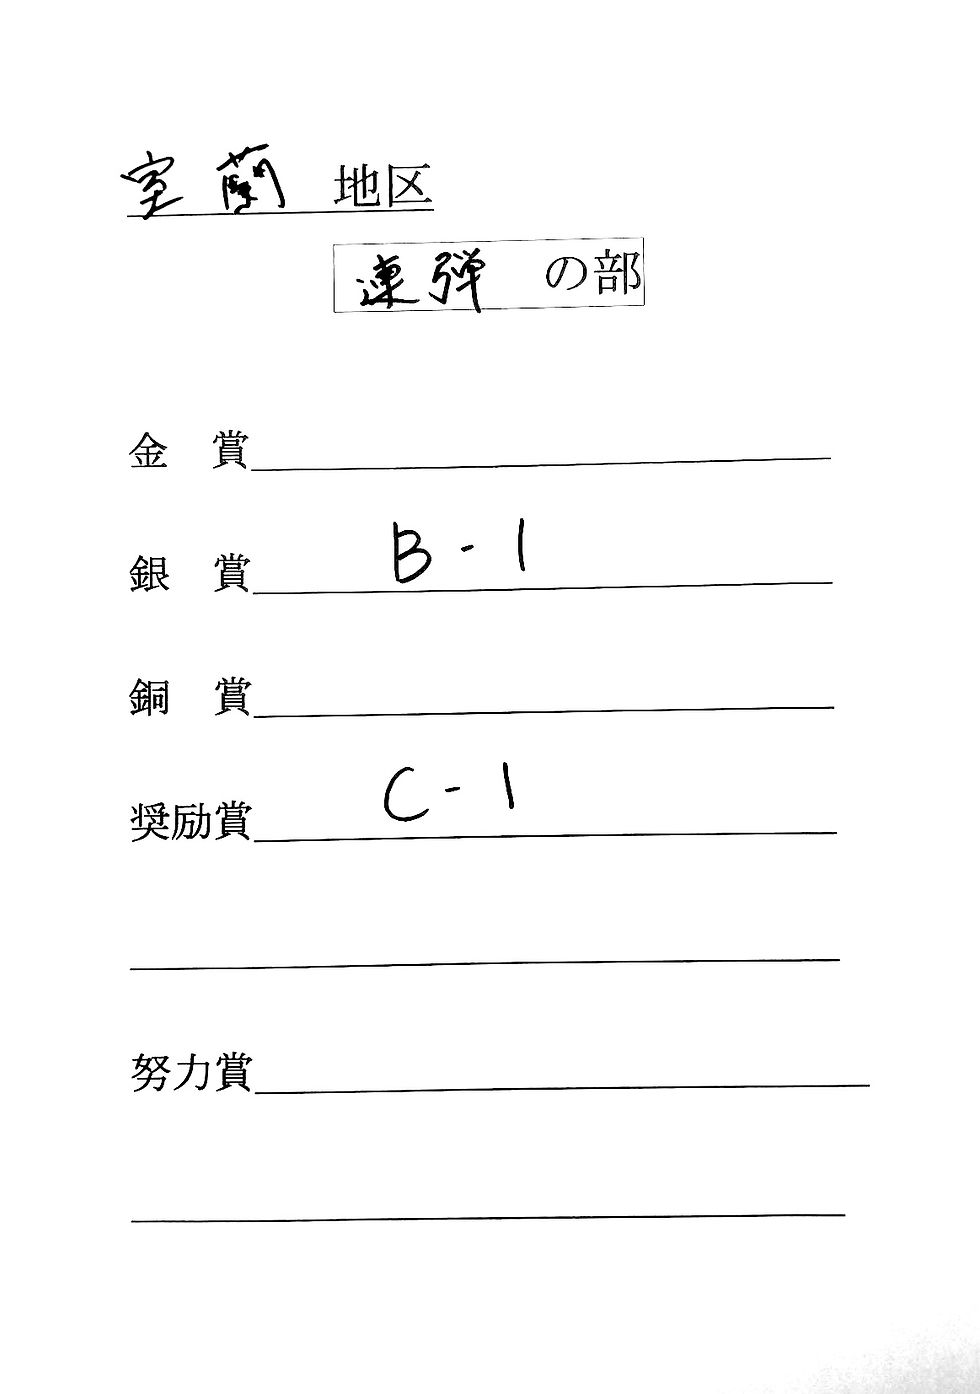 室蘭 地区
連弾 の部
金 賞
銀 賞 B-1
銅 賞
奨励賞 C-1
努力賞